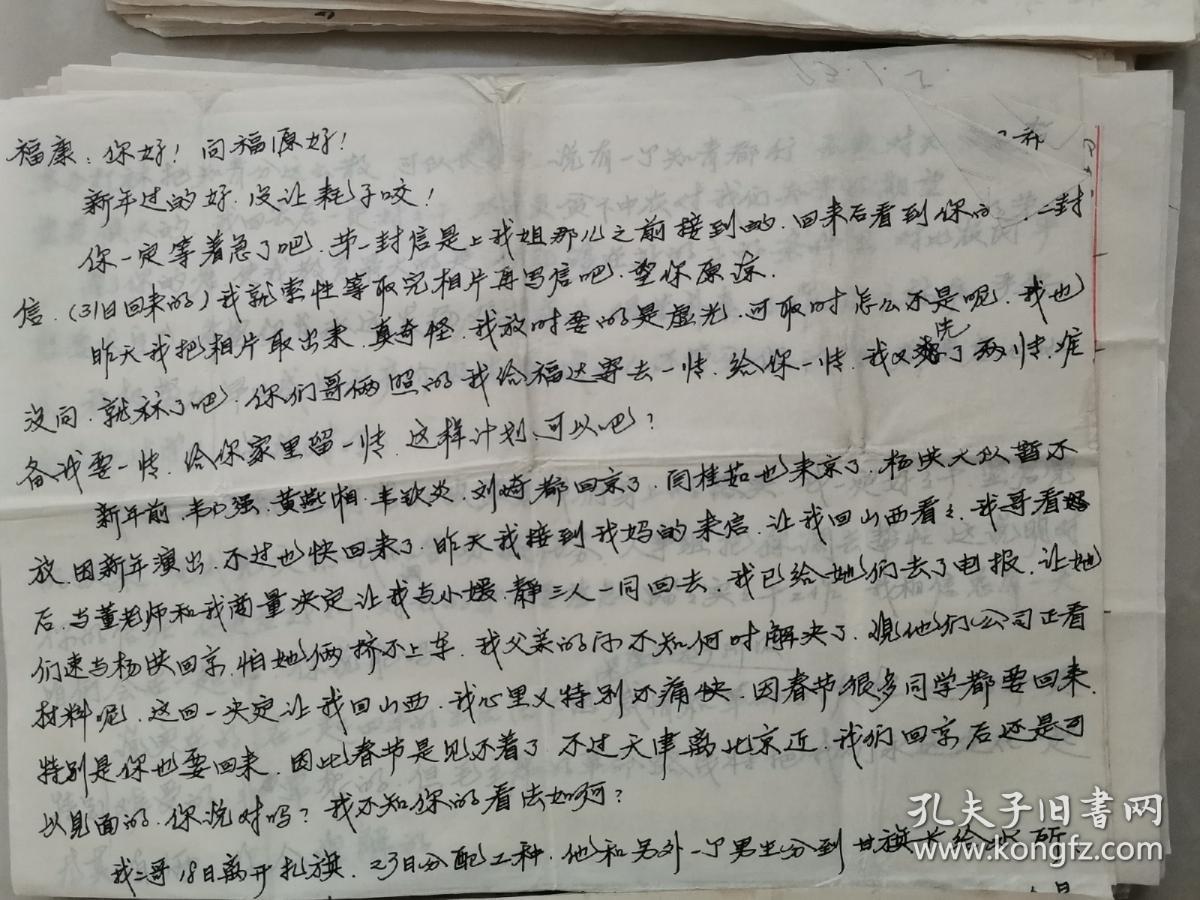 福康：你好！问福源好！
新年过的好，没让耗子咬！
你一定等着急了吧。第一封信是上我姐那儿之前接到的，回来后看到你的 二封
信，（31日回来的）我就索性等取完相片再写信吧，望你原谅。
昨天我把相片取出来，真奇怪，我放时要的是虚光，可取时怎么不是呢，我也
没问，就袜了吧。你们哥俩照的我给福达寄去一张，给你一张，我又洗了两张，准
备我要一张，给你家里留一张，这样计划，可以吧？
新年前，韦 强、黄燕 、韦钦炎、刘崎都回京了，闫桂茹也来京了，杨洪大队暂不
放，因新年演出，不过也快回来了。昨天我接到我妈的来信，让我回山西看之，我哥看
后，与董老师和我商量决定让我与小媛、静三人一同回去，我已给她们去了电报，让她
们速与杨洪回京，怕她俩挤不上车。我父亲的问 不知何时解决了，现他们公司正看
材料呢。这回一决定让我回山西，我心里又特别不痛快，因春节很多同学都要回来，
特别是你也要回来，因此春节是见不着了，不过天津离北京近，我们回京后还是可
以见面的，你说对吗？我不知你的看法如何？
我二哥18日离开扎旗，23日分配工种，他和另外一个男生分到甘旗 给水所
孔夫子旧书网
kongfz.com